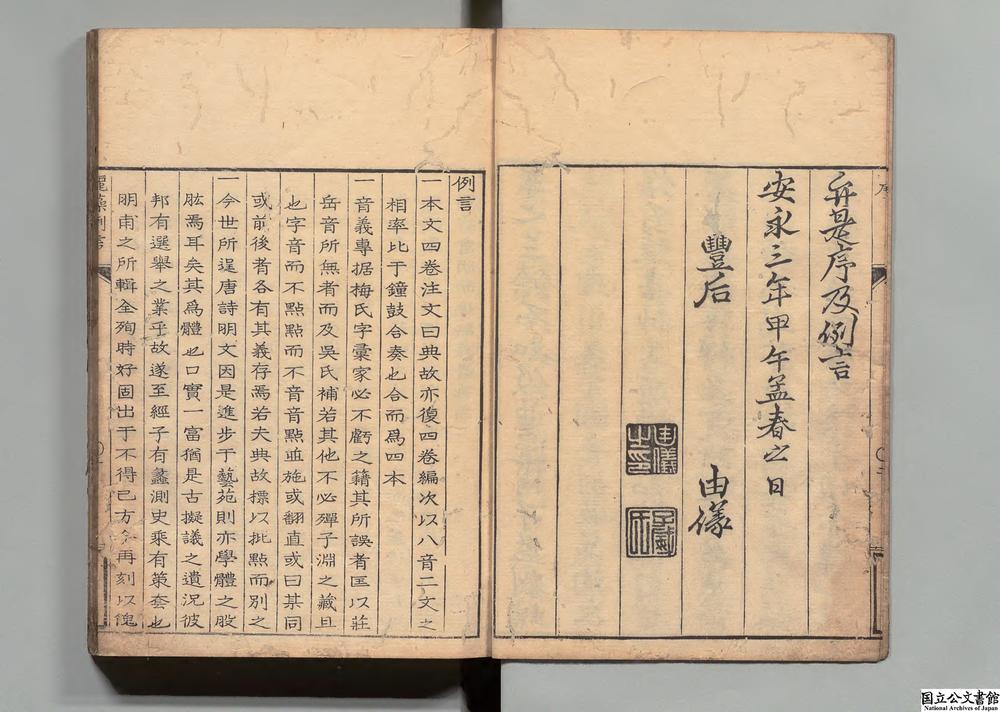 弁是序及例言
安永三年甲午孟春之日
豐后 由儀
由儀之印
例言
一本文四卷注文曰典故亦復四卷編次以八音二文之
相率比于鐘鼓合奏也合而爲四本
一音義專据梅氏字彙家必不虧之籍其所誤者匡以莊
岳音所無者而及吳氏補若其他不必殫子淵之藏且
也字音而不點點而不音音點並施或翻直或曰某同
或前後者各有其義存焉若夫典故標以批點而別之
一今世所逞唐詩明文因是進步于藝苑則亦學體之股
肱焉耳矣其爲體也口實一富猶是古擬議之遺況彼
邦有選舉之業乎故遂至經子有蠡測史乘有策套也
明甫之所輯全殉時好固出于不得已方今再刻以傀
麗藻例言
国立公文書館
National Archives of Japan